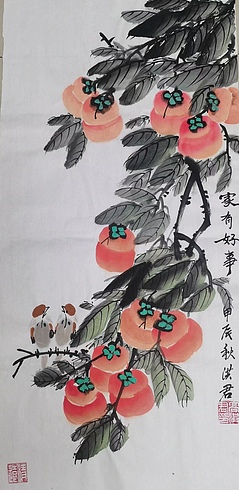 家有好事
甲辰秋洪君